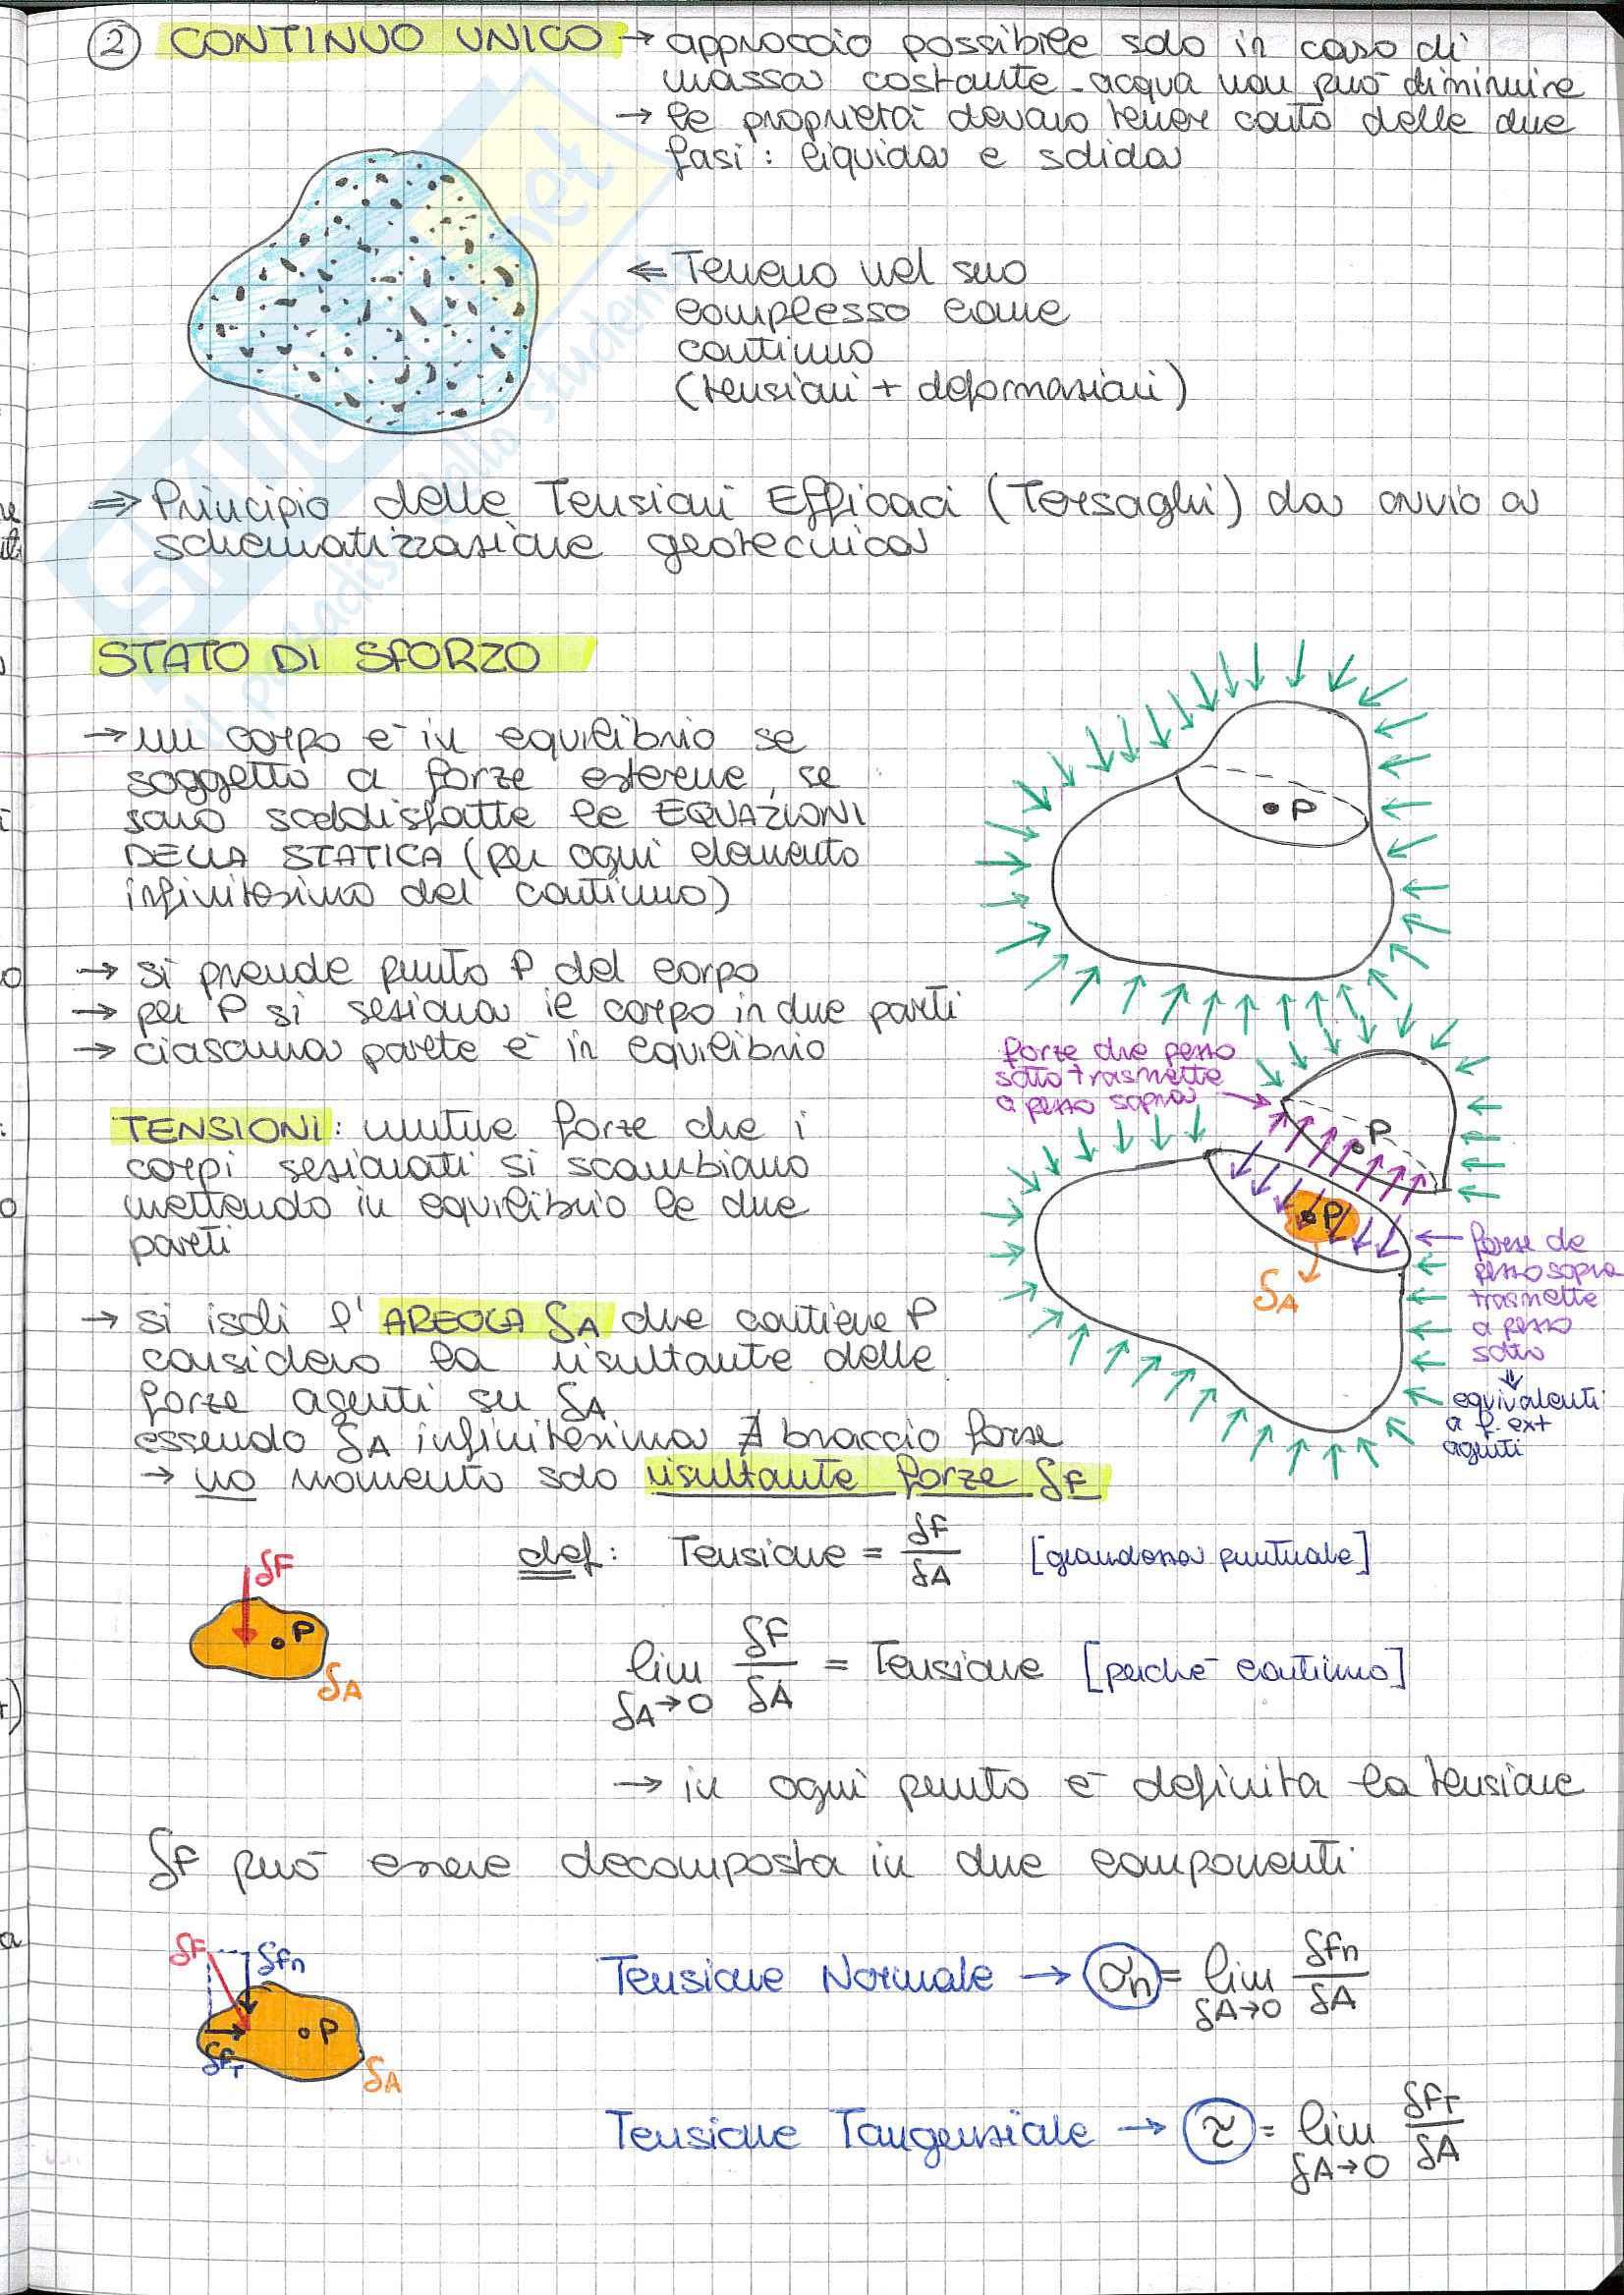 ② CONTINUO UNICO → approccio possibile solo in caso di
massa costante - acqua non può diminuire
→ le proprietà devono tener conto delle due
fasi: liquida e solida
⇐ Terreno nel suo
complesso come
continuo
(tensioni + deformazioni)
⇒ Principio delle Tensioni Efficaci (Terzaghi) da avvio a
schematizzazione geotecnica
STATO DI SFORZO
→ un corpo è in equilibrio se
soggetto a forze esterne, se
sono soddisfatte le EQUAZIONI
DELLA STATICA (per ogni elemento
infinitesimo del continuo)
P
→ si prende punto P del corpo
→ per P si seziona il corpo in due parti
→ ciascuna parte è in equilibrio
forze che pezzo
sotto trasmette
a pezzo sopra
P
TENSIONI: mutue forze che i
corpi sezionati si scambiano
mettendo in equilibrio le due
parti
P
δA
forze che
pezzo sopra
trasmette
a pezzo
sotto
⇓
equivalenti
a f. ext
agenti
→ si isoli l'AREOLA δA che contiene P
considero la risultante delle
forze agenti su δA
essendo δA infinitesima ∄ braccio forze
→ no momento solo risultante forze δF
def: Tensione = δF/δA [grandezza puntuale]
δF
P
δA
lim δA→0 δF/δA = Tensione [perchè continuo]
→ in ogni punto è definita la tensione
δF può essere decomposta in due componenti
δF δFn
P
δFT
δA
Tensione Normale → σn = lim δA→0 δFn/δA
Tensione Tangenziale → τ = lim δA→0 δFT/δA
il paradiso dello studente